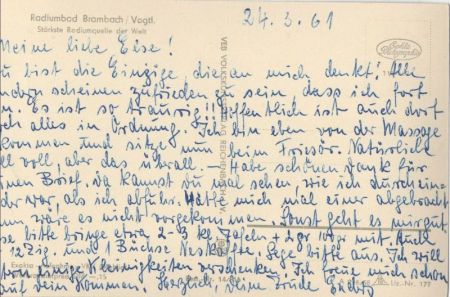 Radiumbad Brambach / Vogtl.
Stärkste Radiumquelle der Welt
24.3.61
Meine liebe Else!
du bist die Einzige die an mich denkt. Alle
andern scheinen zufrieden zu sein, dass ich fort
bin. Es ist so traurig!! Hoffentlich ist auch dort
noch alles in Ordnung. Ich bin eben von der Massage
gekommen und sitze nun beim Friseur. Natürlich
voll, aber das überall. Habe schönen Dank für
deinen Brief, da kannst du mal sehen, wie ich durcheinan-
der war, als ich abfuhr. Hätte mich mal einer abgebracht
dann wäre es nicht vorgekommen. Sonst geht es mir gut.
bitte bringe etwa 2-3 kl. Tafeln mit. Auch
12 und 1 Büchse Neskaffee. bitte aus. Ich will
einige Kleinigkeiten verschenken. Ich freue mich schon
auf dein Kommen! Herzlich Deine
VEB VOLKSKUNSTVERLAG REICHENBACH
Echte Photographie